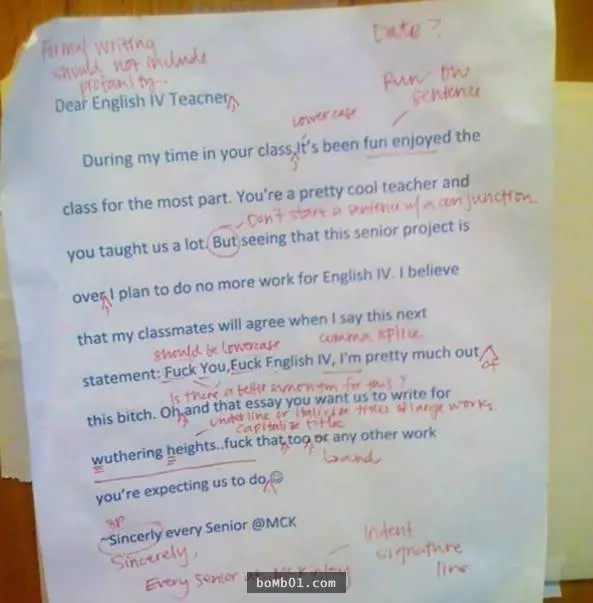 Formal writing
should not include
profanity.
Date?
Run-on
sentence
Dear English IV Teacher
lowercase
During my time in your class,It's been fun enjoyed the
class for the most part. You're a pretty cool teacher and
Don't start a sentence w/ a conjunction
you taught us a lot. But seeing that this senior project is
over, I plan to do no more work for English IV. I believe
that my classmates will agree when I say this next
should be lowercase
comma splice
statement: Fuck You,Fuck English IV, I'm pretty much out
of
Is there a better synonym for this?
this bitch. Oh,and that essay you want us to write for
underline or italicize titles of large works.
capitalize title
wuthering heights..fuck that,too, or any other work
and
you're expecting us to do ☺
sp
~Sincerly every Senior @MCK
Sincerely,
Indent
signature
line
Every senior at
boMb01.com